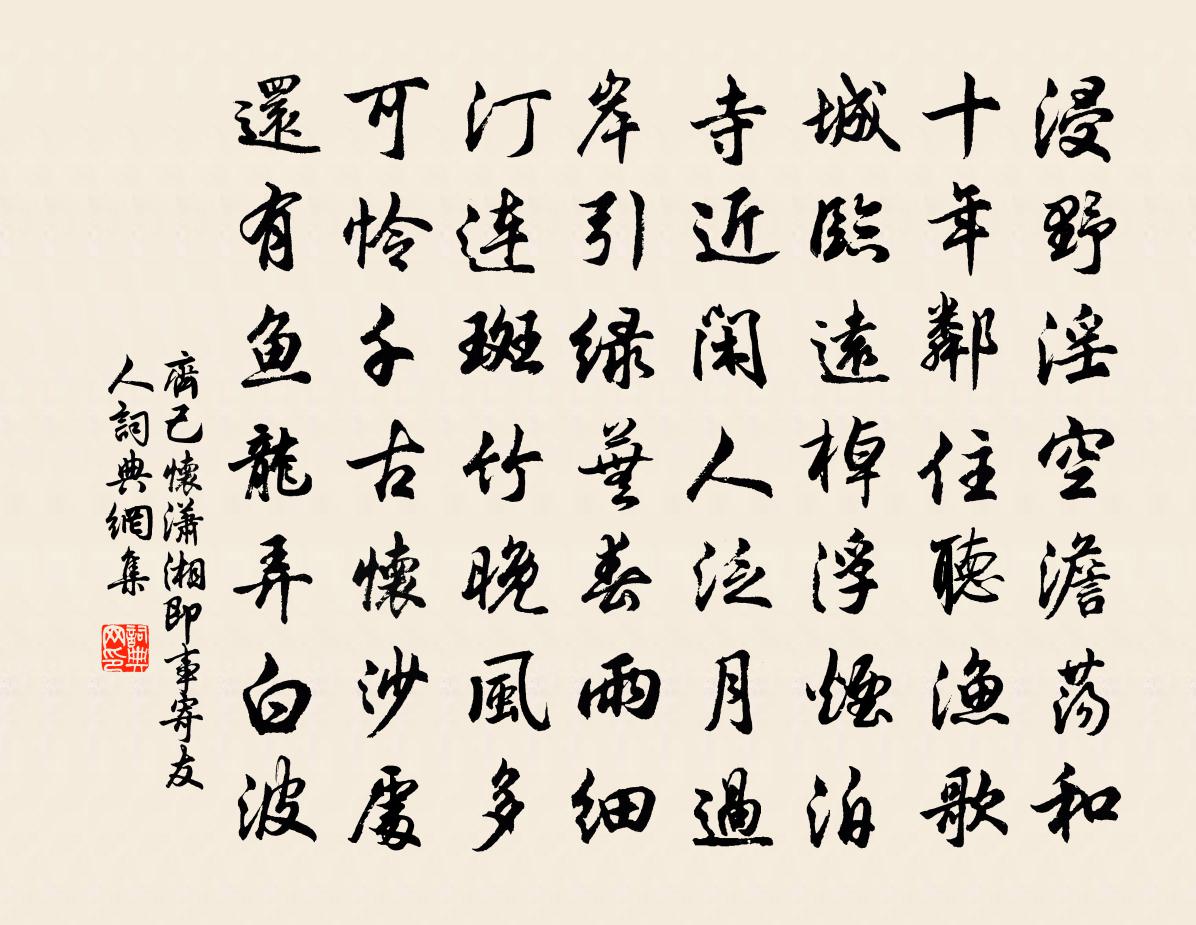 浸野淫空澹蕩和
十年鄰住聽漁歌
城臨遠棹浮煙泊
寺近閑人泛月過
岸引綠蕪春雨細
汀連斑竹晚風多
可憐千古懷沙處
還有魚龍弄白波
齊己懷瀟湘即事寄友
人詞典網集
詞典
网印